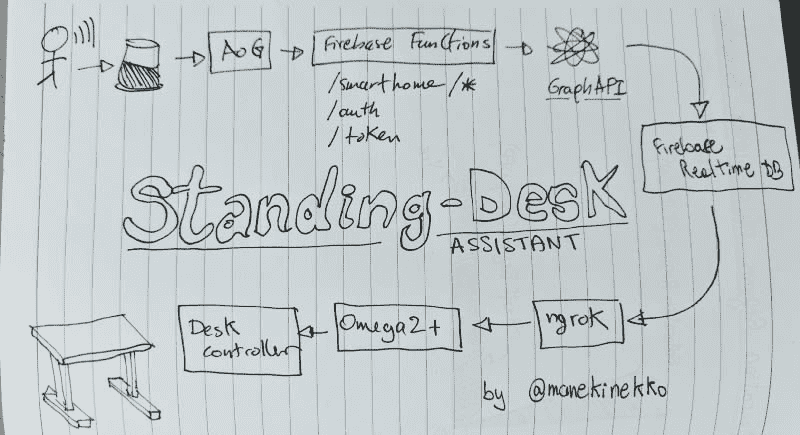 AoG
Firebase Functions
/smarthome/*
/auth
/token
GraphAPI
Firebase
Realtime DB
Standing-Desk
ASSISTANT
Desk
controller
Omega2+
ngrok
by @manekinekko